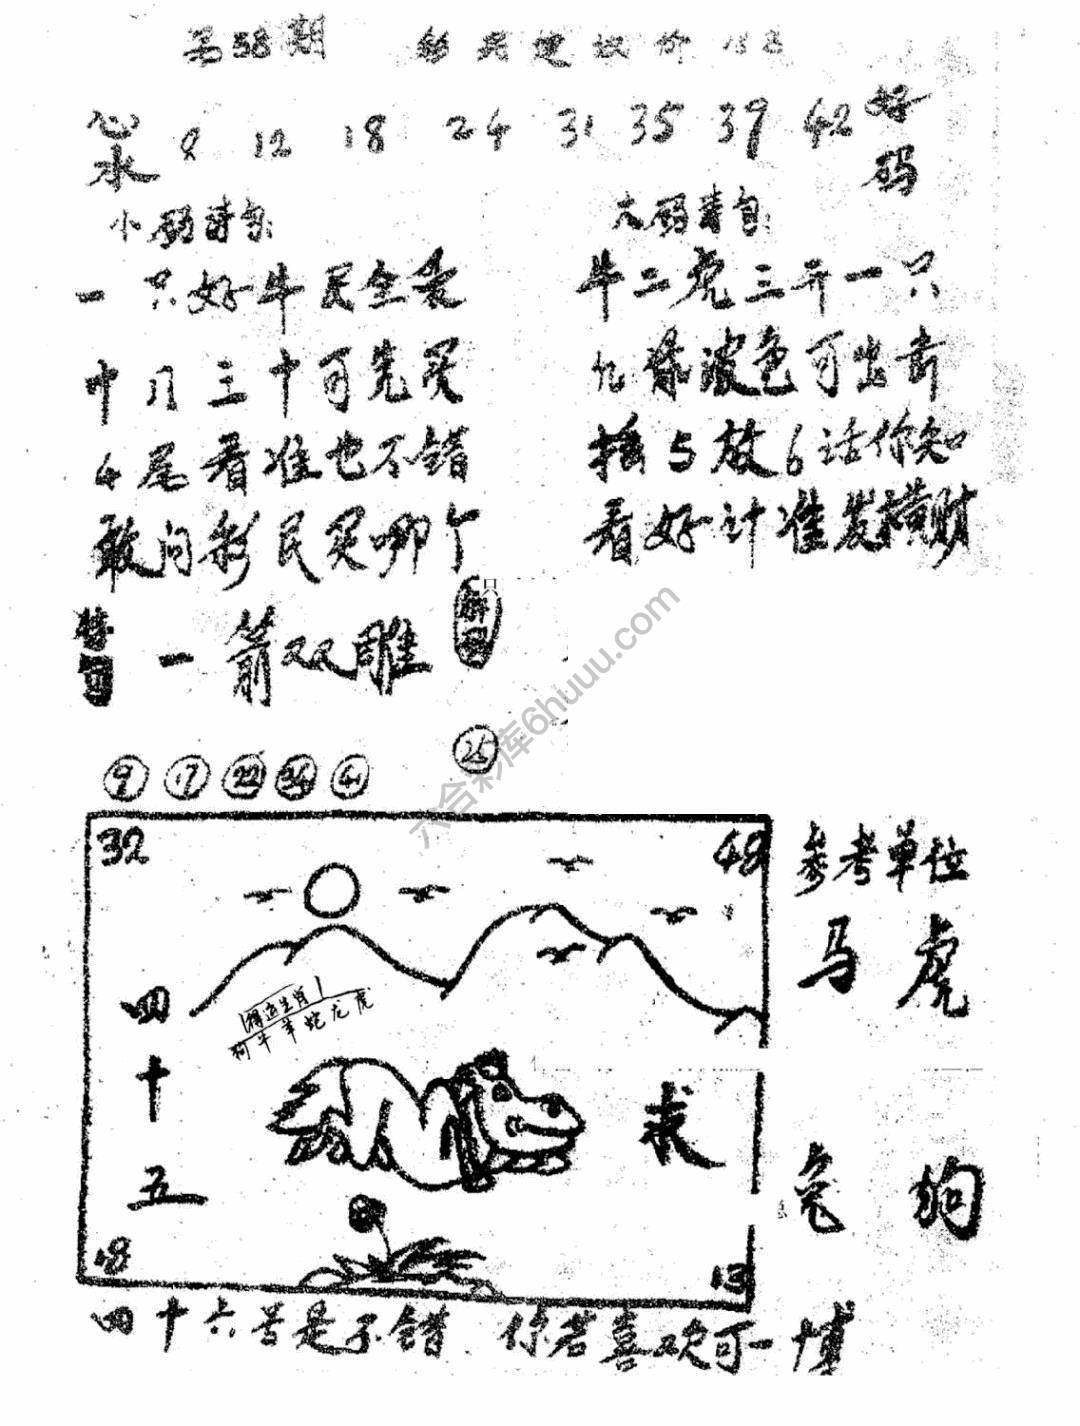 第38期
心水 9 12 18 24 31 35 39 42 好码
小码诗句:
一只好牛买全年
叶月三十可先买
4尾看准也不错
敢问彩民买哪个
大码诗句:
牛二虎三开一只
九绿波色可出击
摇5放6话你知
看好计准发横财
一箭双雕
9 17 22 34 41
32 48
得运生肖
狗牛羊蛇龙虎
四十五
求
18 13
参考单位
马虎
兔狗
四十六号是不错 你若喜欢可一博
六合彩库6huuu.com